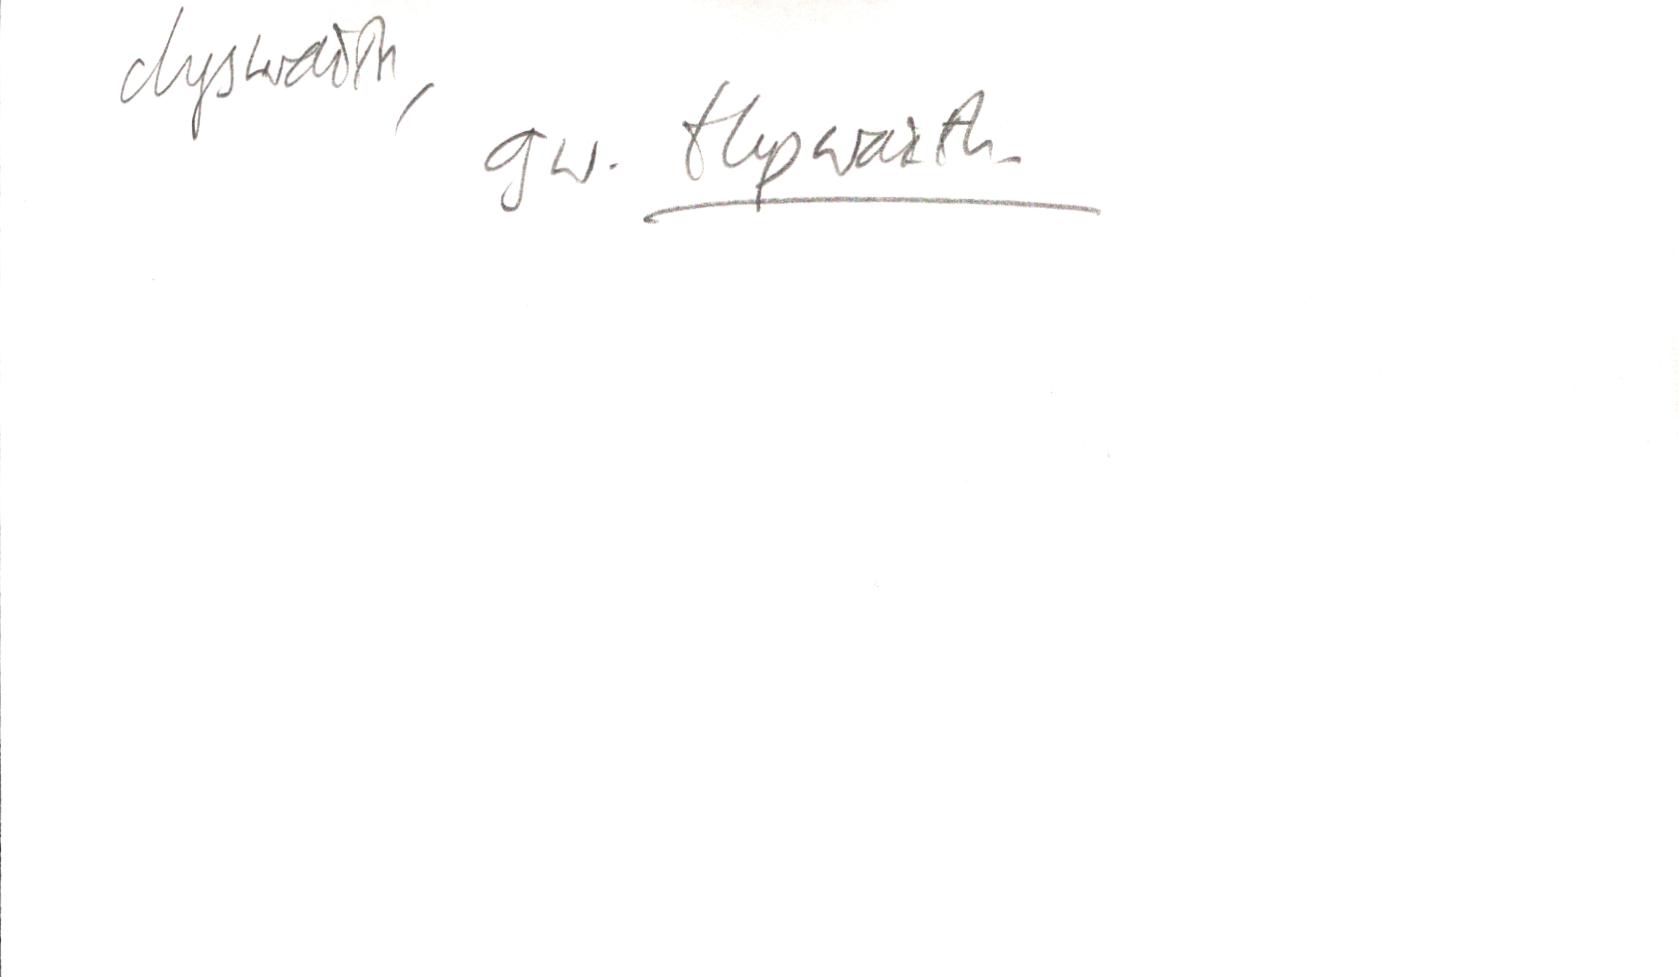 dlyswaith,
gw. tlyswaith